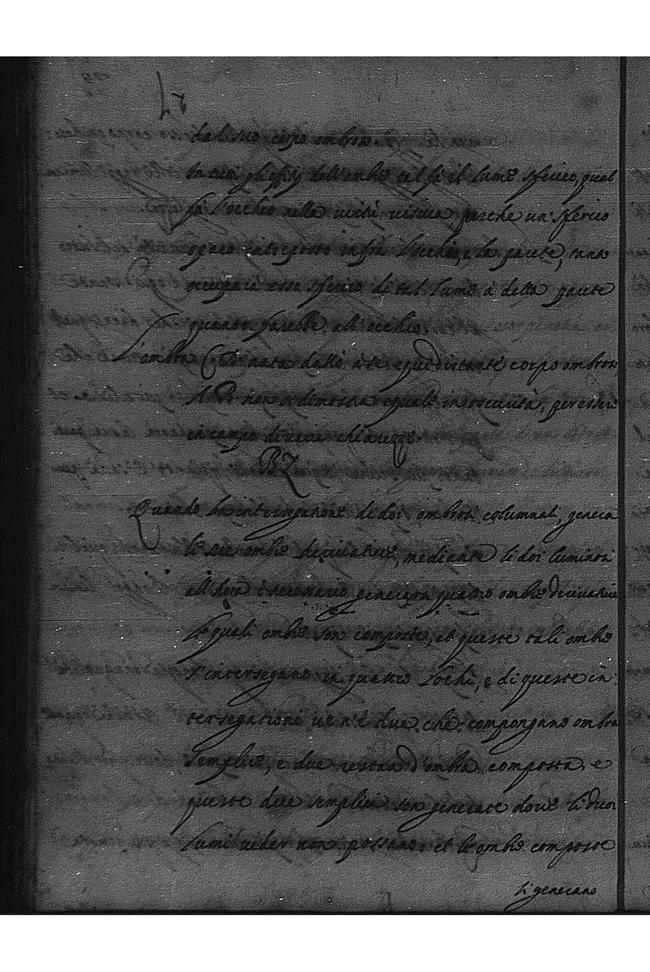 ha il suo corpo ombroso.
In tutti gli offitij dell'ombre tal fà il lume sferico, qual
fà l'occhio nella virtù visiva, perche un sferico
opaco interposto infrà l'occhio, e la parete, tanto
occuparà esso sferico di tal lume à detta parete
quanto farebbe all'occhio.
L'ombra nata dallo equidistante corpo ombroso
non si dimostra equale in oscurità, perche è
in campo di varie chiarezze.
Quando la intersegatione di doi ombrosi columnali, genera
li sue ombre derivative, mediante li doi luminosi
all'hora è necessario generarsi quattro ombre derivative
le quali ombre son composte, et queste tali ombre
s'intersegano in quattro lochi, e di queste in-
tersegationi ve n'è due che compongano ombra
semplice, e due restan d'ombra composta. e
queste due semplici son generate dove li duoi
lumi veder non possano, et le ombre composte
si generano